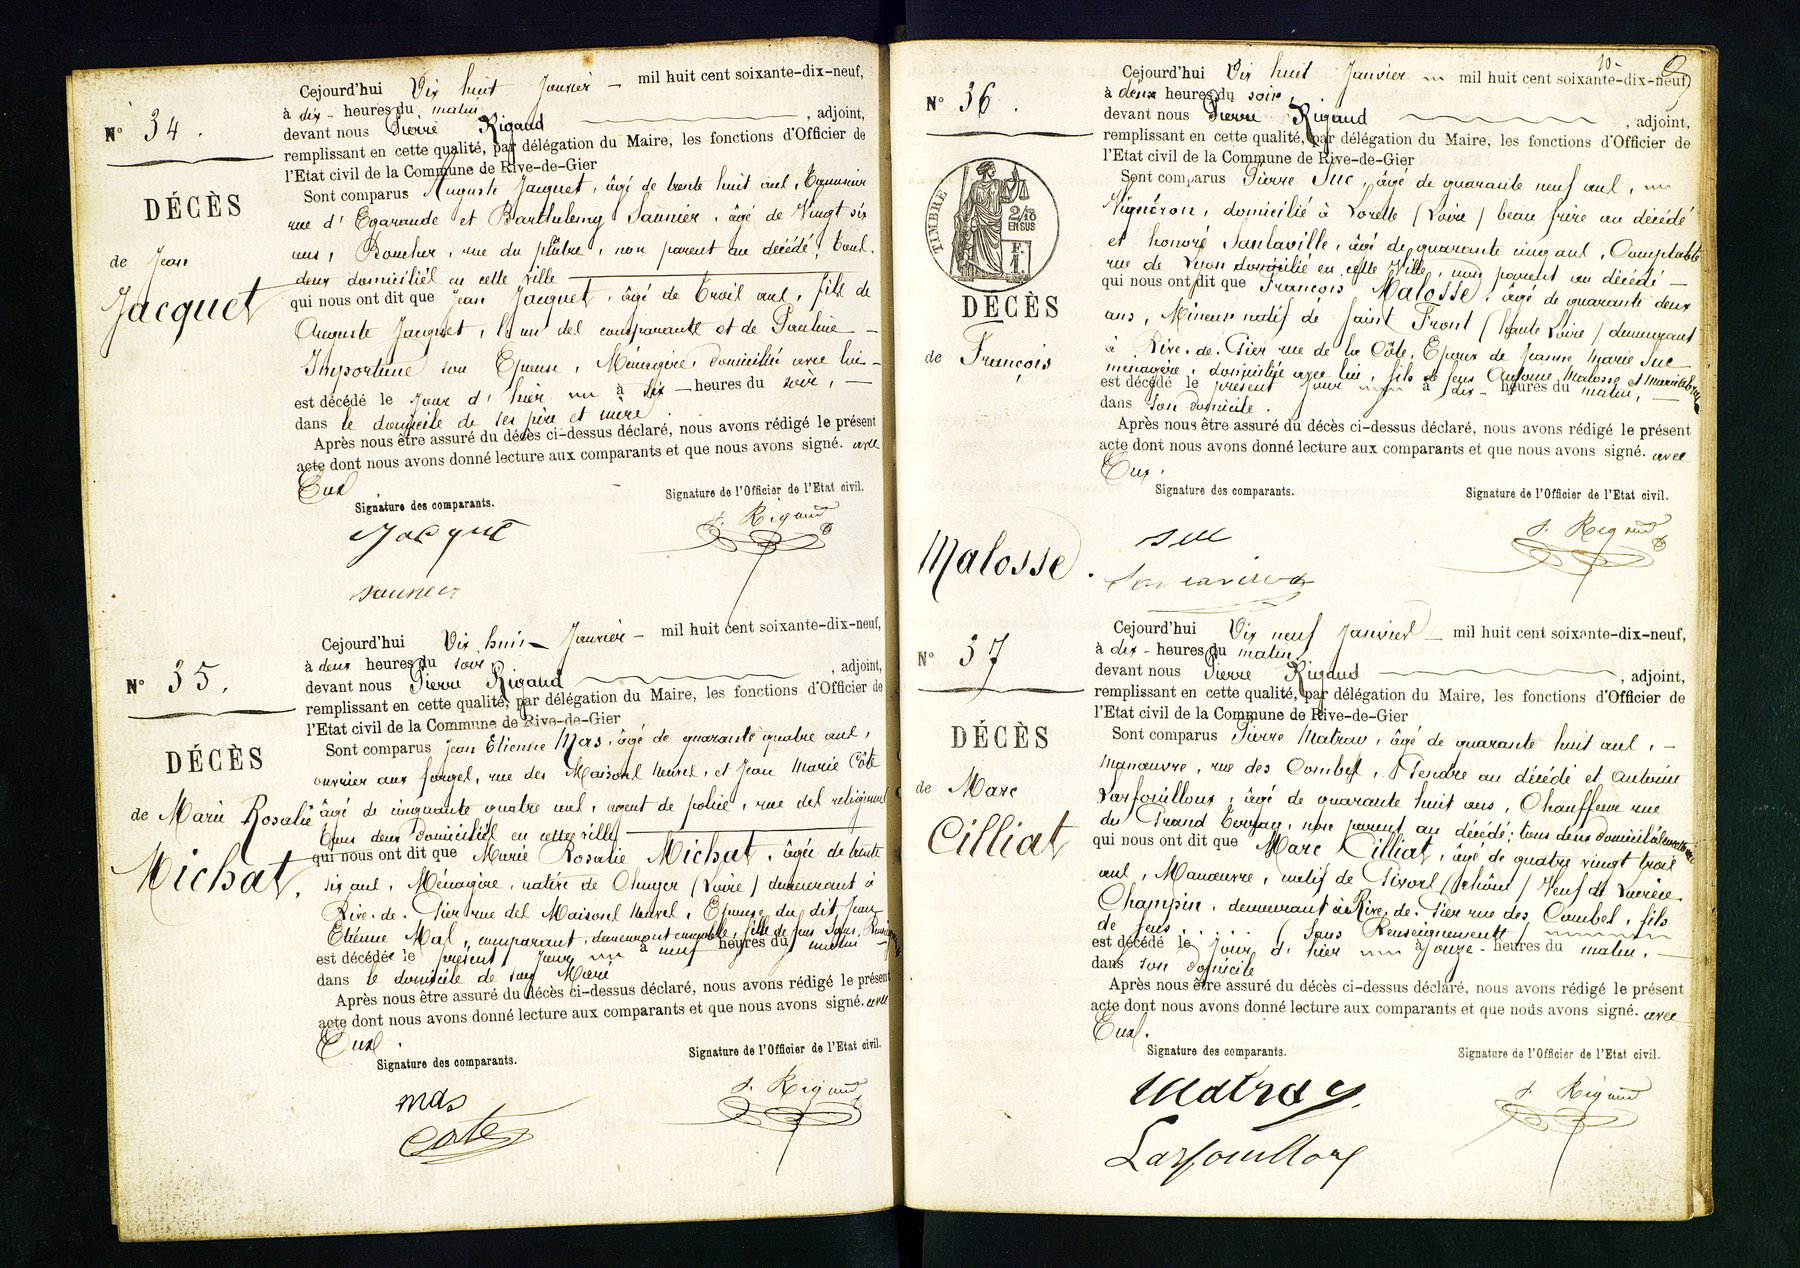 Cejourd'hui Dix huit Janvier — mil huit cent soixante-dix-neuf,
à dix - heures du matin
N° 34.
devant nous Pierre Rigaud , adjoint,
remplissant en cette qualité, par délégation du Maire, les fonctions d'Officier de
l'Etat civil de la Commune de Rive-de-Gier
DÉCÈS
de Jean
Jacquet
Sont comparus Auguste Jacquet, âgé de trente huit ans,
rue d'Egarande et Barthelemy Saunier, âgé de Vingt six
ans, Boucher, rue du plâtre, non parent au décédé, tous
deux domiciliés en cette ville
qui nous ont dit que Jean Jacquet, âgé de trois ans, fils de
Auguste Jacquet, l'un des comparants et de Pauline —
son Epouse, Ménagère, domiciliés avec lui —
est décédé le jour d'hier à dix — heures du soir, —
dans le domicile de ses père et mère
Après nous être assuré du décès ci-dessus déclaré, nous avons rédigé le présent
acte dont nous avons donné lecture aux comparants et que nous avons signé. avec
Eux
Signature des comparants.
Signature de l'Officier de l'Etat civil.
Jacquet
P. Rigaud
saunier
Cejourd'hui Dix huit — Janvier — mil huit cent soixante-dix-neuf,
à deux heures du soir
N° 35.
devant nous Pierre Rigaud , adjoint,
remplissant en cette qualité, par délégation du Maire, les fonctions d'Officier de
l'Etat civil de la Commune de Rive-de-Gier
DÉCÈS
de Marie Rosalie
Michat.
Sont comparus Jean Etienne Mas, âgé de quarante quatre ans,
ouvrier aux forges, rue des Maisons neuves, et Jean Marie Côte
âgé de cinquante quatre ans, agent de police, rue des religieuses
tous deux domiciliés en cette ville
qui nous ont dit que Marie Rosalie Michat, âgée de trente
six ans, Ménagère, native de Chuyer (Loire) demeurant à
Rive-de-Gier rue des Maisons neuves, Epouse du dit Jean
Etienne Mas, comparant, demeurant ensemble, fille de feus
est décédée le présent jour à neuf heures du matin —
dans le domicile de son Mari
Après nous être assuré du décès ci-dessus déclaré, nous avons rédigé le présent
acte dont nous avons donné lecture aux comparants et que nous avons signé. avec
Eux.
Signature des comparants.
Signature de l'Officier de l'Etat civil.
mas
P. Rigaud
Cote
10-
9
Cejourd'hui Dix huit Janvier mil huit cent soixante-dix-neuf,
à deux heures du soir,
N° 36.
devant nous Pierre Rigaud , adjoint,
remplissant en cette qualité, par délégation du Maire, les fonctions d'Officier de
l'Etat civil de la Commune de Rive-de-Gier
TIMBRE
2/10
EN SUS
F
1.
DÉCÈS
de François
Malosse.
Sont comparus Pierre Suc, âgé de quarante neuf ans,
Vigneron, domicilié à Lorette (Loire) beau frère au décédé
et honoré Sanlaville, âgé de quarante cinq ans, Comptable
rue de Lyon domicilié en cette Ville, non parent au décédé —
qui nous ont dit que François Malosse, âgé de quarante deux
ans, Mineur natif de Saint Front (haute Loire) demeurant
à Rive-de-Gier rue de la Côte, Epoux de Jeanne Marie Suc
ménagère, domiciliée avec lui, fils de feus Antoine Malosse et Marie
est décédé le présent jour à dix - heures du matin, —
dans son domicile.
Après nous être assuré du décès ci-dessus déclaré, nous avons rédigé le présent
acte dont nous avons donné lecture aux comparants et que nous avons signé. avec
Eux.
Signature des comparants.
Signature de l'Officier de l'Etat civil.
suc
P. Rigaud
Cejourd'hui Dix neuf Janvier — mil huit cent soixante-dix-neuf,
à dix - heures du matin
N° 37
devant nous Pierre Rigaud , adjoint,
remplissant en cette qualité, par délégation du Maire, les fonctions d'Officier de
l'Etat civil de la Commune de Rive-de-Gier
DÉCÈS
de Marc
Cilliat
Sont comparus Pierre Matray, âgé de quarante huit ans, —
Manœuvre, rue des Combes, Gendre au décédé et Antoine
Larfouilloux, âgé de quarante huit ans, Chauffeur rue
du Grand , non parent au décédé; tous deux domiciliés
qui nous ont dit que Marc Cilliat, âgé de quatre vingt trois
ans, Manœuvre, natif de Givors (Rhône) Veuf de Lucrèce
Champin, demeurant à Rive-de-Gier rue des Combes, fils
de feus (Sans Renseignements)
est décédé le jour d'hier à onze - heures du matin, —
dans son domicile
Après nous être assuré du décès ci-dessus déclaré, nous avons rédigé le présent
acte dont nous avons donné lecture aux comparants et que nous avons signé. avec
Eux.
Signature des comparants.
Signature de l'Officier de l'Etat civil.
Matray.
P. Rigaud
Larfouilloux